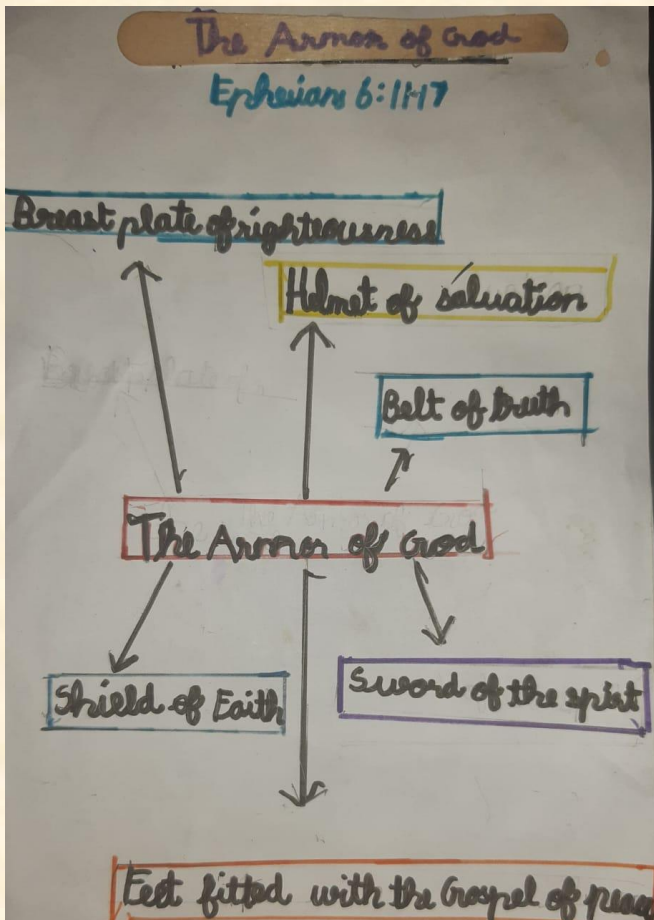 The Armor of God
Ephesians 6:11-17
Breast plate of righteousness
Helmet of salvation
Belt of truth
The Armor of God
Shield of Faith
Sword of the spirit
Feet fitted with the Gospel of peace